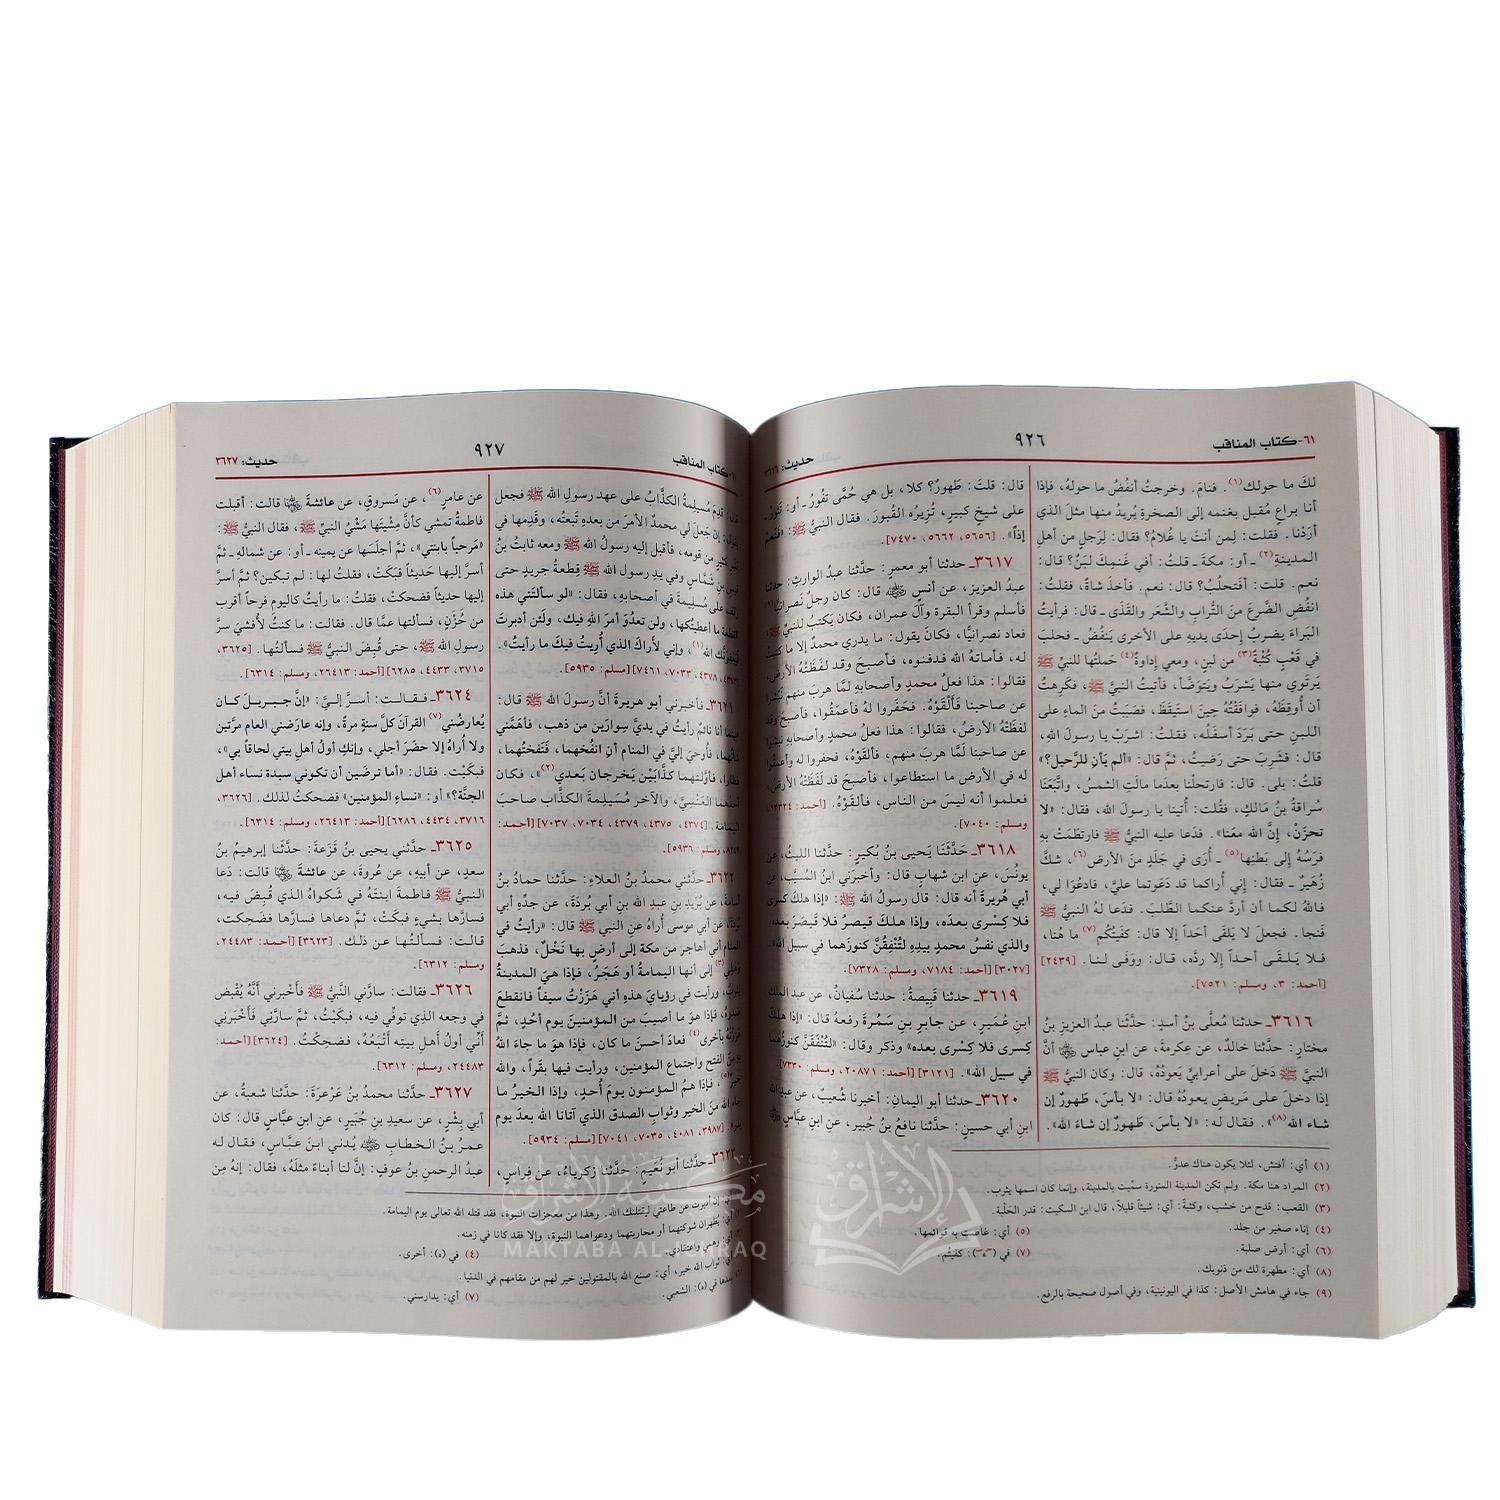 ٦١- كتاب المناقب
٩٢٦
حديث: ٣٦١٦
لكَ ما حولك(١). فنامَ. وخرجتُ أنفُضُ ما حولهُ، فإذا
أنا براعٍ مُقبل بغنمه إلى الصخرةِ يُريدُ منها مثلَ الذي
أرَدْنا. فقلتُ: لِمن أنتَ يا غُلامُ؟ فقال: لِرَجلٍ من أهلِ
المدينةِ(٢) ـ أو: مكة ـ قلتُ: أفي غَنمِكَ لَبَنٌ؟ قال:
نعم. قلت: أفتحلُبُ؟ قال: نعم. فأخذَ شاةً، فقلتُ:
انفُضِ الضَّرعَ منَ التُّرابِ والشَّعَر والقَذَى ـ قال: فرأيتُ
البَراءَ يضرِبُ إحدَى يديهِ على الأخرى يَنفُضُ ـ فحلبَ
في قَعْبٍ كُثْبةً(٣) من لبنٍ، ومعي إداوةٌ(٤) حَملتُها للنبيِّ ﷺ
يَرتَوي منها يَشرَبُ ويَتوَضَّأ، فأتيتُ النبيَّ ﷺ، فكَرِهتُ
أن أُوقِظَهُ، فوافَقْتُهُ حِينَ استَيقَظَ، فصَبَبتُ منَ الماءِ على
اللبنِ حتى بَرَدَ أسفَلُه، فقلتُ: اشرَبْ يا رسولَ الله،
قال: فشَرِبَ حتى رَضيتُ، ثمَّ قال: «ألم يَأنِ للرَّحيل؟»
قلتُ: بلى. قال: فارتحلْنا بعدَما مالَتِ الشمسُ، واتَّبَعَنا
سُراقةُ بنُ مَالكٍ، فقُلت: أُتينا يا رسولَ الله، فقال: «لا
تحزَنْ، إنَّ الله معَنا». فدَعا عليه النبيُّ ﷺ فارتطَمَتْ بهِ
فرَسُهُ إلى بَطنِها(٥) ـ أُرَى في جَلَدٍ منَ الأرضِ(٦)، شكَّ
زُهَيرٌ ـ فقال: إني أُراكما قد دَعَوتما عليَّ، فادعُوَا لي،
فاللهُ لكما أن أردَّ عنكما الطَّلبَ. فدَعا لهُ النبيُّ ﷺ
فَنجا. فجعلَ لا يَلقَى أحداً إلا قال: كفَيتُكُم(٧) ما هُنا،
فلا يَلقى أحداً إلا ردَّه، قال: ووَفَى لنا. [٢٤٣٩]
[أحمد: ٣، ومسلم: ٧٥٢١].
٣٦١٦ـ حدثنا مُعلَّى بنُ أسدٍ: حدَّثَنا عبدُ العزيزِ بنُ
مختارٍ: حدَّثَنا خالدٌ، عن عِكرِمةَ، عنِ ابنِ عباس أنَّ
النبيَّ ﷺ دَخلَ على أعرابيٍّ يَعودُهُ، قال: وكان النبيُّ ﷺ
إذا دخلَ على مَريضٍ يعودُهُ قال: «لا بأسَ، طَهورٌ إن
شاء الله(٨)». فقال له: «لا بأسَ، طَهورٌ إن شاءَ الله».
قال: قلتَ: طَهورٌ؟ كلا، بل هي حُمَّى تفُورُ ـ أو: تَثورُ ـ
على شيخٍ كبيرٍ، تُزِيرُه القُبورَ. فقال النبيُّ ﷺ: «فَنَعمْ
إذاً». [٥٦٥٦، ٥٦٦٢، ٧٤٧٠].
٣٦١٧ـ حدثنا أبو معمرٍ: حدَّثنا عبدُ الوارثِ: حدثنا
عبدُ العزيز، عن أنسٍ قال: كان رجلٌ نَصرانيًّا
فأسلم وقرأ البقرةَ وآلَ عمران، فكان يَكتبُ للنبيِّ ﷺ،
فعادَ نصرانيًّا، فكانَ يقول: ما يدري محمدٌ إلا ما كتبتُ
له، فأماتَهُ الله فدفنوه، فأصبحَ وقد لَفَظَتْهُ الأرضُ،
فقالوا: هذا فعلُ محمدٍ وأصحابهِ لمَّا هربَ منهم نَبَشُوا
عن صاحبنا فألْقَوْهُ. فحَفَروا لهُ فأعمَقُوا، فأصبحَ وقد
لفَظَتْهُ الأرضُ، فقالوا: هذا فعلُ محمدٍ وأصحابهِ نَبشُوا
عن صاحبنا لَمَّا هربَ منهم، فألقَوْهُ، فحفروا له وأعمقُوا
له في الأرضِ ما استطاعوا، فأصبحَ قد لَفَظَتْهُ الأرضُ،
فعلموا أنه ليسَ من الناس، فألقَوْهُ. [أحمد: ١٣٣٢٤،
ومسلم: ٧٠٤٠].
٣٦١٨ـ حَدَّثَنا يَحيى بنُ بُكيرٍ: حدَّثنا الليثُ، عن
يونُسَ، عنِ ابن شهابٍ قال: وأخبرَني ابنُ المُسيَّب، عن
أبي هُريرةَ أنه قال: قال رسولُ الله ﷺ: «إذا هلكَ كسرى
فلا كِسرَى بعدَه، وإذا هلكَ قيصرُ فلا قَيصرَ بعدَه،
والذي نفسُ محمدٍ بيدِهِ لتُنْفِقُنَّ كنوزَهما في سبيل الله».
[٣٠٢٧][أحمد: ٧١٨٤، ومسلم: ٧٣٢٨].
٣٦١٩ـ حدثنا قَبيصةُ: حدثنا سُفيانُ، عن عبد الملك
ابنِ عُمَيرٍ، عن جابرِ بنِ سَمُرةَ رفعهُ قال: «إذا هلكَ
كِسرى فلا كِسْرى بعده» وذكر وقال: «لتُنْفَقَنَّ كنوزُهما
في سبيل الله». [٣١٢١][أحمد: ٢٠٨٧١، ومسلم: ٧٣٣٠].
٣٦٢٠ـ حدثنا أبو اليمان: أخبرنا شُعيبٌ، عن عبدِ الله
ابنِ أبي حسينٍ: حدَّثنا نافعُ بنُ جُبيرٍ، عنِ ابنِ عبَّاس
(١) أي: أفتش، لئلا يكون هناك عدوٌّ.
(٢) المراد هنا مكة. ولم تكن المدينة المنورة سمِّيت بالمدينة، وإنما كان اسمها يثرب.
(٣) القعب: قدح من خشب، وكثبةً: أي: شيئاً قليلاً، قال ابن السكيت: قدر الحَلْبة.
(٤) إناء صغير من جلد.
(٥) أي: غاصت به قوائمها.
(٦) أي: أرض صلبة.
(٧) في: كفيتُم.
(٨) أي: مطهرة لك من ذنوبك.
(٩) جاء في هامش الأصل: كذا في اليونينية، وفي أصول صحيحة بالرفع.
كتاب المناقب
٩٢٧
حديث: ٣٦٢٧
قال: قدِمَ مُسيلِمةُ الكذَّابُ على عهد رسولِ الله ﷺ فجعل
يقول: إن جَعلَ لي محمدٌ الأمرَ من بعدِهِ تَبعتُه، وقَدِمَها في
بَشَرٍ كثيرٍ من قومه، فأقبل إليه رسولُ الله ﷺ ومعه ثابتُ بنُ
قيسِ بنِ شَمَّاسٍ وفي يدِ رسول الله ﷺ قِطعةُ جريدٍ حتى
وقفَ على مُسيلِمةَ في أصحابِهِ، فقال: «لو سألتَني هذه
القطعةَ ما أعطيتُكها، ولن تعدُوَ أمرَ اللهِ فيك، ولَئن أدبرتَ
ليَعْقِرنَّكَ الله(١)، وإني لأراكَ الذي أُرِيتُ فيكَ ما رأيتُ».
[٤٣٧٣، ٤٣٧٨، ٧٠٣٣، ٧٤٦١][مسلم: ٥٩٣٥].
٣٦٢١ـ فأخبرني أبو هريرةَ أنَّ رسولَ الله ﷺ قال:
«بينما أنا نائمٌ رأيتُ في يديَّ سِوارَين من ذهب، فأهَمَّني
شأنُهما، فأُوحيَ إليَّ في المنام أنِ انفُخهما، فَنَفختُهما،
فطارا، فأوَّلتُهما كذَّابَيْنِ يَخرجانِ بَعدي(٢)»، فكان
أحدُهما العَنْسِيَّ، والآخر مُسَيلِمةَ الكذّاب صاحبَ
اليمامة. [٤٣٧٤، ٤٣٧٥، ٤٣٧٩، ٧٠٣٤، ٧٠٣٧][أحمد:
٨٢٤٩، ومسلم: ٥٩٣٦].
٣٦٢٢ـ حدَّثني محمدُ بنُ العلاءِ: حدَّثنا حمادُ بنُ
أسامةَ، عن بُرَيدِ بنِ عبدِ الله بنِ أبي بُردَةَ، عن جدِّه أبي
بُردةَ، عن أبي موسى أُراهُ عنِ النبي ﷺ قال: «رأيتُ في
المنامِ أني أُهاجر من مكةَ إلى أرضٍ بها نَخْلٌ، فذهبَ
وَهَلي(٣) إلى أنها اليمامةُ أو هَجَرُ، فإذا هيَ المدينةُ
يثربُ، ورأيت في رؤيايَ هذهِ أني هَزَزْتُ سيفاً فانقطعَ
صَدرُه، فإذا هو ما أُصيبَ منَ المؤمنينَ يومَ أُحدٍ، ثمَّ
هززتُه بأخرى(٤) فعادَ أحسنَ ما كان، فإذا هوَ ما جاءَ اللهُ
بهِ منَ الفتح واجتماعِ المؤمنين، ورأيت فيها بقَراً، واللهُ
خيرٌ(٥)، فإذا همُ المؤمنون يومَ أُحدٍ، وإذا الخيرُ ما
جاء اللهُ منَ الخير وثوابِ الصدق الذي آتانا الله بعدَ يوم
بَدر». [٣٩٨٧، ٤٠٨١، ٧٠٣٥، ٧٠٤١][مسلم: ٥٩٣٤].
٣٦٢٣ـ حدَّثنا أبو نُعَيمٍ: حدَّثنا زكرياءُ، عن فِراس،
عن عامرٍ(٦)، عن مَسروقٍ، عن عائشةَ قالت: أقبلت
فاطمةُ تمشي كأنَّ مِشْيَتَها مَشْيُ النبيِّ ﷺ، فقال النبيُّ ﷺ:
«مَرحباً بابنتي»، ثمَّ أجلَسَها عن يمينه ـ أو: عن شماله ـ ثمَّ
أسرَّ إليها حَديثاً فبَكَتْ، فقلتُ لها: لم تبكين؟ ثمَّ أسرَّ
إليها حديثاً فضحكتْ، فقلتُ: ما رأيتُ كاليوم فَرحاً أقرب
من حُزْنٍ، فسألتها عمَّا قال. فقالت: ما كنتُ لأُفشيَ سرَّ
رسولِ الله ﷺ، حتى قُبِضَ النبيُّ ﷺ فسألتُها. [٣٦٢٥،
٣٧١٥، ٤٤٣٣، ٦٢٨٥][أحمد: ٢٦٤١٣، ومسلم: ٦٣١٤].
٣٦٢٤ـ فقالت: أسرَّ إليَّ: «إنَّ جبريلَ كان
يُعارضُني(٧) القرآنَ كلَّ سنةٍ مرةً، وإنه عارَضني العام مرَّتين
ولا أُراهُ إلا حضَرَ أجلي، وإنكِ أولُ أهلِ بيتي لَحاقاً بي»،
فبكَيْت. فقال: «أما ترضَين أن تكوني سيدة نساء أهل
الجنَّة؟» أو: «نساءِ المؤمنين» فضحكتُ لذلك. [٣٦٢٦،
٣٧١٦، ٤٤٣٤، ٦٢٨٦][أحمد: ٢٦٤١٣، ومسلم: ٦٣١٤].
٣٦٢٥ـ حدَّثني يحيى بنُ قَزَعةَ: حدَّثنا إبرهيمُ بنُ
سعدٍ، عن أبيه، عن عُروةَ، عن عائشةَ قالت: دَعا
النبيُّ ﷺ فاطمةَ ابنتَهُ في شكواهُ الذي قُبِضَ فيه،
فسارَّها بشيءٍ فبكَتْ، ثمَّ دعاها فسارَّها فضحكت،
قالت: فسألتُها عن ذلك. [٣٦٢٣][أحمد: ٢٤٤٨٣،
ومسلم: ٦٣١٢].
٣٦٢٦ـ فقالت: سارَّني النَّبيُّ ﷺ فأخبرني أنَّهُ يُقبَضُ
في وجعه الذِي توفِّي فيه، فبكَيْتُ، ثمَّ سارَّني فأخْبَرَني
أنِّي أولُ أهلِ بيتِه أتْبَعُهُ، فضحِكْتُ. [٣٦٢٤][أحمد:
٢٤٤٨٣، ومسلم: ٦٣١٢].
٣٦٢٧ـ حدَّثنا محمدُ بنُ عَرْعَرَةَ: حدَّثنا شعبةُ، عن
أبي بِشْرٍ، عن سعيدِ بنِ جُبَيرٍ، عن ابنِ عبَّاسٍ قال: كان
عمرُ بنُ الخطابِ يُدني ابنَ عبَّاس، فقال له
عبدُ الرحمنِ بنُ عوفٍ: إنَّ لنا أبناءً مثلَهُ، فقال: إنهُ مِن
أي: إن أدبرت عن طاعتي ليقتلنك الله. وهذا من معجزات النبوة، فقد قتله الله تعالى يوم اليمامة.
أي: يظهران شوكتهما أو محاربتهما ودعواهما النبوة، وإلا فقد كانا في زمنه.
أي: وهمي واعتقادي.
(٤) في (ه): أخرى.
أي: ثواب الله خير، أي: صنع الله بالمقتولين خير لهم من مقامهم في الدنيا.
بعدها في (ه): الشعبي.
(٧) أي: يدارسني.
مكتبة الإشراق
MAKTABA AL-ISHRAQ
الإشراق